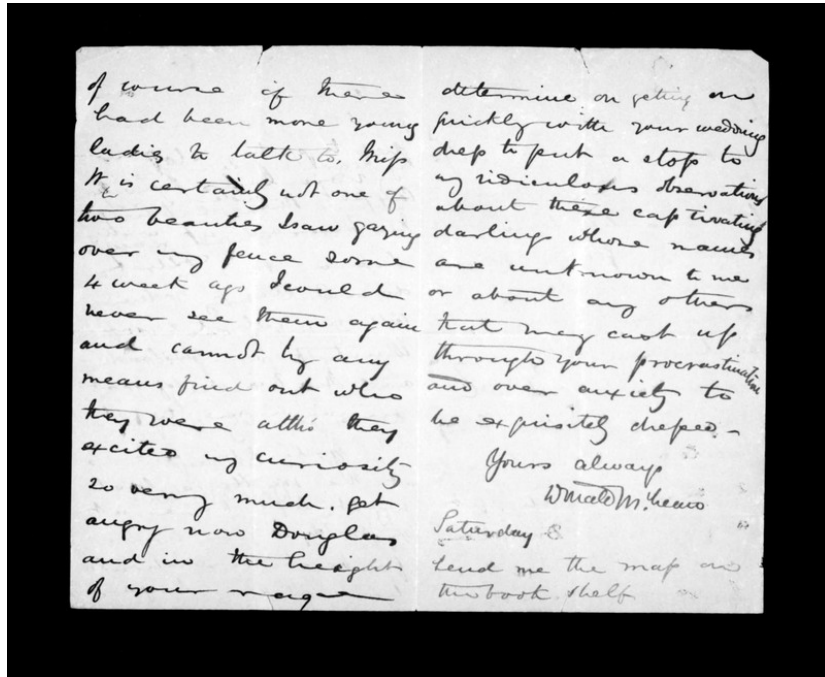 of course if there
had been more young
ladies to talk to. Miss
W is certainly not one of
two beauties I saw gazing
over my fence some
4 week ago I could
never see them again
and cannot by any
means find out who
they were altho they
excited my curiosity
so very much. get
angry now Douglas
and in the height
of your rage
determine on getting on
quickly with your wedding
dress to put a stop to
my ridiculous observations
about these captivating
darling whose names
are unknown to me
or about any others
that may cast up
through your procrastination
and over anxiety to
be exquisitely dressed. -
Yours always
Donald McLean
Saturday
Send me the map on
the book shelf